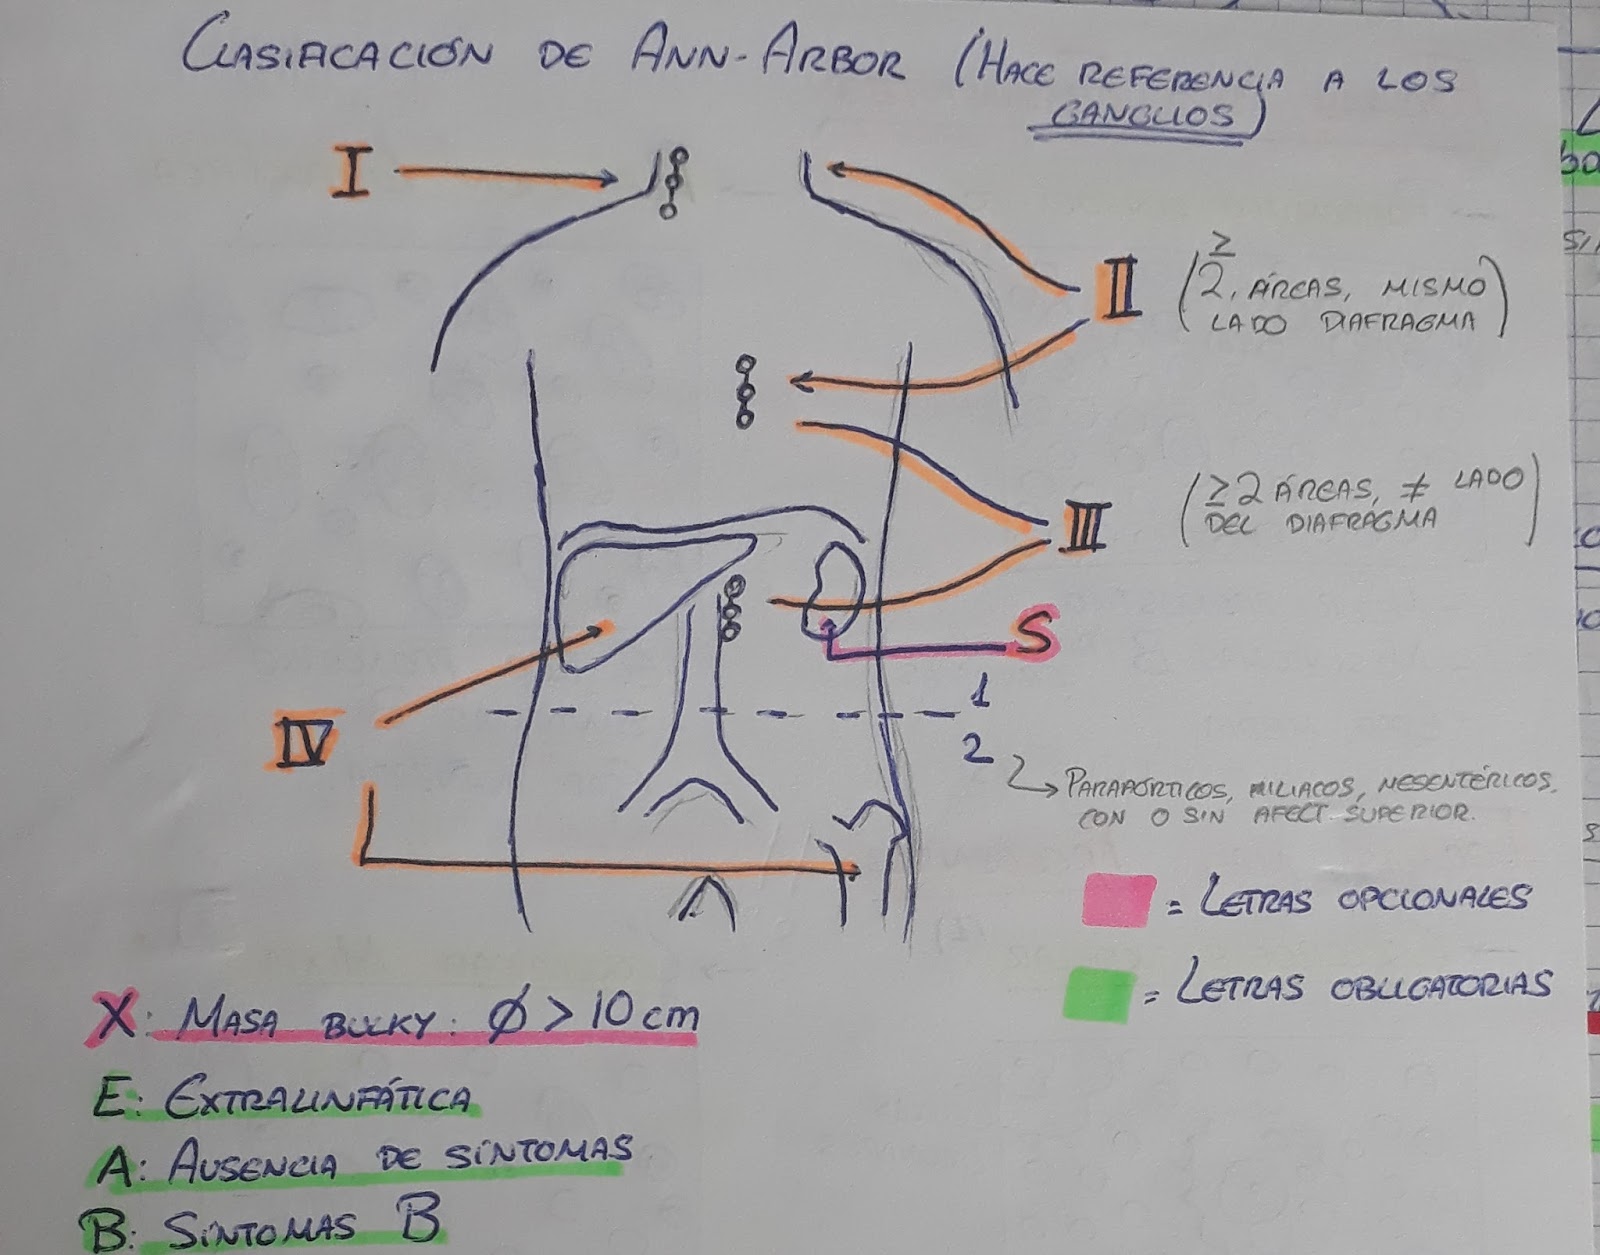 CLASIFICACIÓN DE ANN-ARBOR (HACE REFERENCIA A LOS
GANGLIOS)
I
II
(≥2 ÁREAS, MISMO
LADO DIAFRAGMA)
III
(≥2 ÁREAS, ≠ LADO
DEL DIAFRAGMA)
S
IV
1
2
PARAAÓRTICOS, MILIACOS, MESENTÉRICOS,
CON O SIN AFECT. SUPERIOR.
= LETRAS OPCIONALES
= LETRAS OBLIGATORIAS
X: MASA BULKY: Ø > 10 cm
E: EXTRALINFÁTICA
A: AUSENCIA DE SÍNTOMAS
B: SÍNTOMAS B